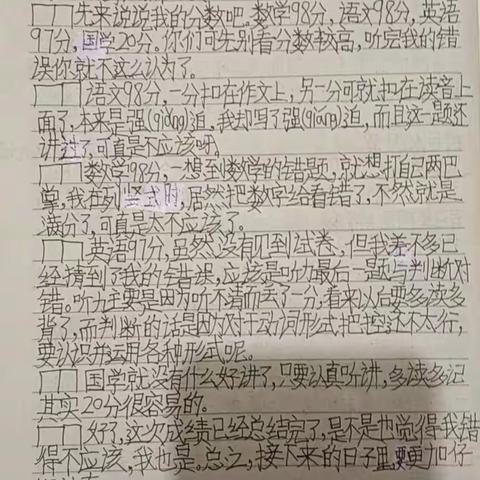 先来说说我的分数吧。数学98分,语文98分,英语
97分,国学20分。你们可先别看分数较高,听完我的错
误你就不这么认为了。
语文98分,一分扣在作文上,另一分可就扣在读音上
面了,本来是强(qiǎng)迫,我却写了强(qiáng)迫,而且这一题还
讲过了,可真是不应该呀。
数学98分,一想到数学的错题,就想打自己两巴
掌,我在列竖式时,居然把数字给看错了,不然就是
满分了,可真是太不应该了。
英语97分,虽然没有见到试卷,但我差不多已
经猜到了我的错误,应该是听力最后一题与判断对
错。听力主要是因为听不清而丢了一分,看来以后要多读多
背了,而判断的话是因为对于动词形式把控还不太行,
要认识并运用各种形式呢。
国学就没有什么好讲了,只要认真听讲,多读多记
其实20分很容易的。
好了,这次成绩已经总结完了,是不是也觉得我错
得不应该,我也是。总之,接下来的日子里,要更加仔